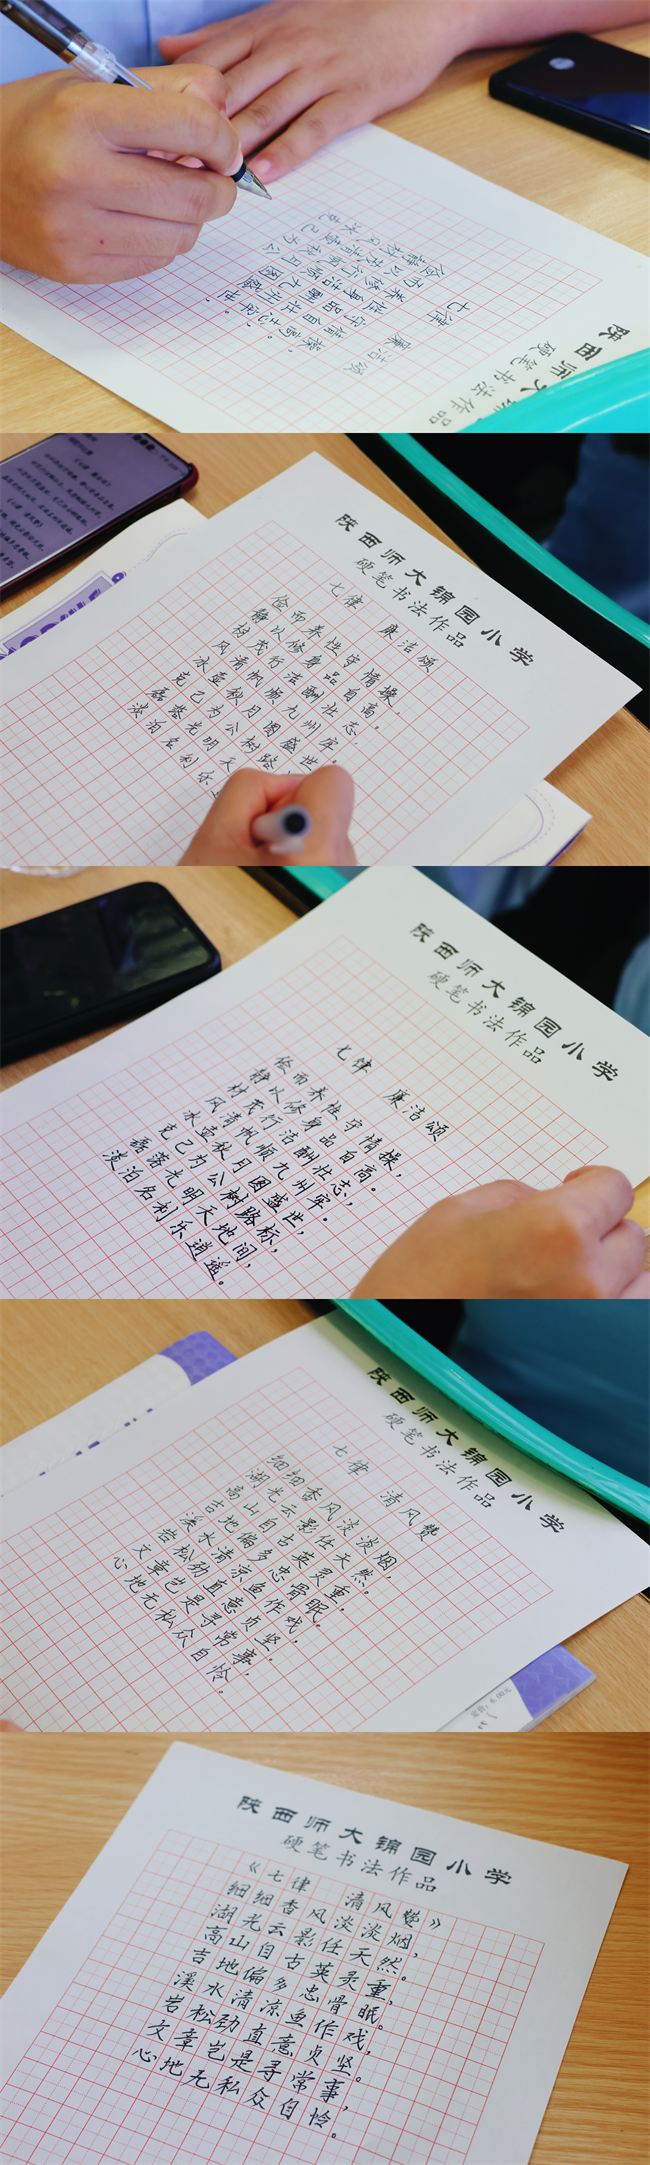 七律 廉洁颂
俭而养性守情操，
静以修身品自高。
材茂行洁酬壮志，
风清帆顺九州牢。
冰壶秋月图盛世
克己为公
陕西师大锦
硬笔书法作品
陕西师大锦园小学
硬笔书法作品
七律 廉洁颂
俭而养性守情操，
静以修身品自高。
材茂行洁酬壮志，
风清帆顺九州牢。
冰壶秋月图盛世
克己为公树路
磊落光明天
淡泊名利乐
陕西师大锦园小学
硬笔书法作品
七律 廉洁颂
俭而养性守情操，
静以修身品自高。
材茂行洁酬壮志，
风清帆顺九州牢。
冰壶秋月图盛世，
克己为公树路标，
磊落光明天地间，
淡泊名利乐逍遥。
陕西师大锦园小学
硬笔书法作品
七律 清风赞
细细香风淡淡烟，
湖光云影任天然。
高山自古英灵重，
吉地偏多忠骨眠。
溪水清凉鱼作戏，
岩松劲直意贞坚。
文章岂是寻常事，
心地无私众自怜。
定价：6.00元
陕西师大锦园小学
硬笔书法作品
《七律 清风赞》
细细香风淡淡烟，
湖光云影任天然。
高山自古英灵重，
吉地偏多忠骨眠。
溪水清凉鱼作戏，
岩松劲直意贞坚。
文章岂是寻常事，
心地无私众自怜。